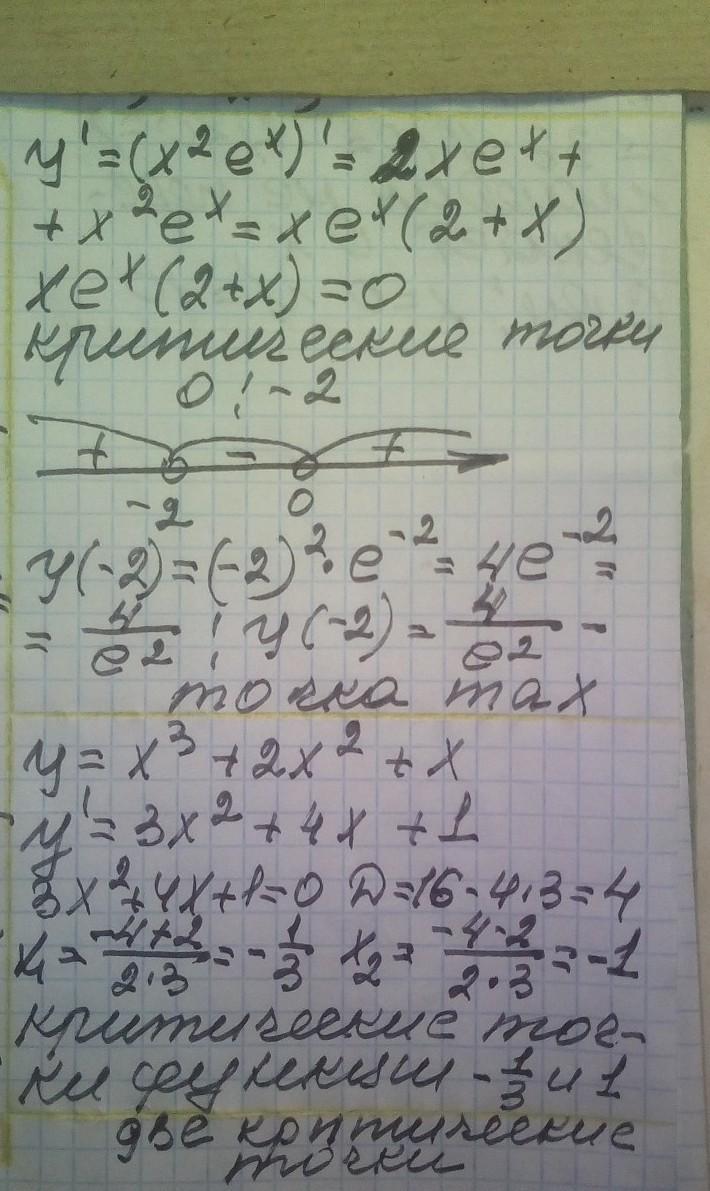 y' = (x²eˣ)' = 2xeˣ +
+ x²eˣ = xeˣ(2 + x)
xeˣ(2+x) = 0
критические точки
0 ; -2
+ - +
-2 0
y(-2) = (-2)² · e⁻² = 4e⁻² =
= 4/e² ; y(-2) = 4/e² -
точка max
y = x³ + 2x² + x
y' = 3x² + 4x + 1
3x²+4x+1=0 D=16-4·3=4
x₁ = (-4+2)/(2·3) = -1/3 x₂ = (-4-2)/(2·3) = -1
критические точ-
ки функции -1/3 и 1
две критические
точки